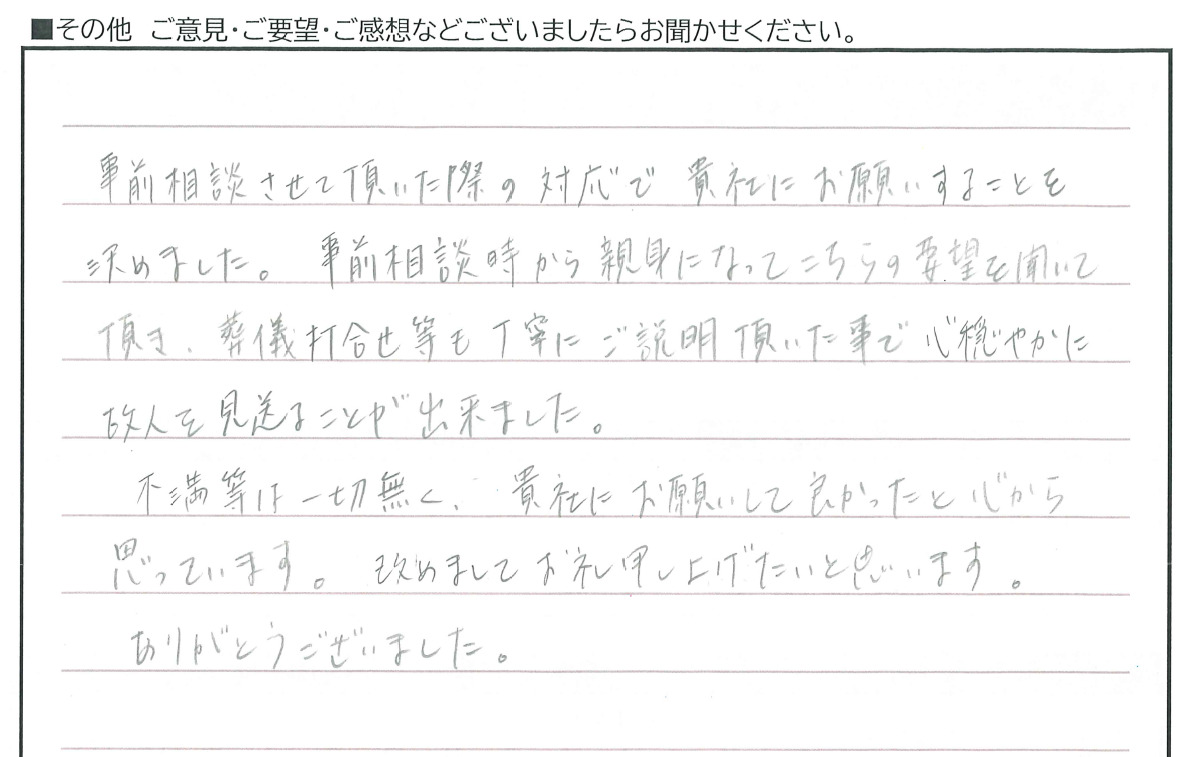 ■その他 ご意見・ご要望・ご感想などございましたらお聞かせください。
事前相談させて頂いた際の対応で貴社にお願いすることを
決めました。事前相談時から親身になってこちらの要望を聞いて
頂き、葬儀打合せ等も丁寧にご説明頂いた事で心穏やかに
故人を見送ることが出来ました。
不満等は一切無く、貴社にお願いして良かったと心から
思っています。改めましてお礼申し上げたいと思います。
ありがとうございました。